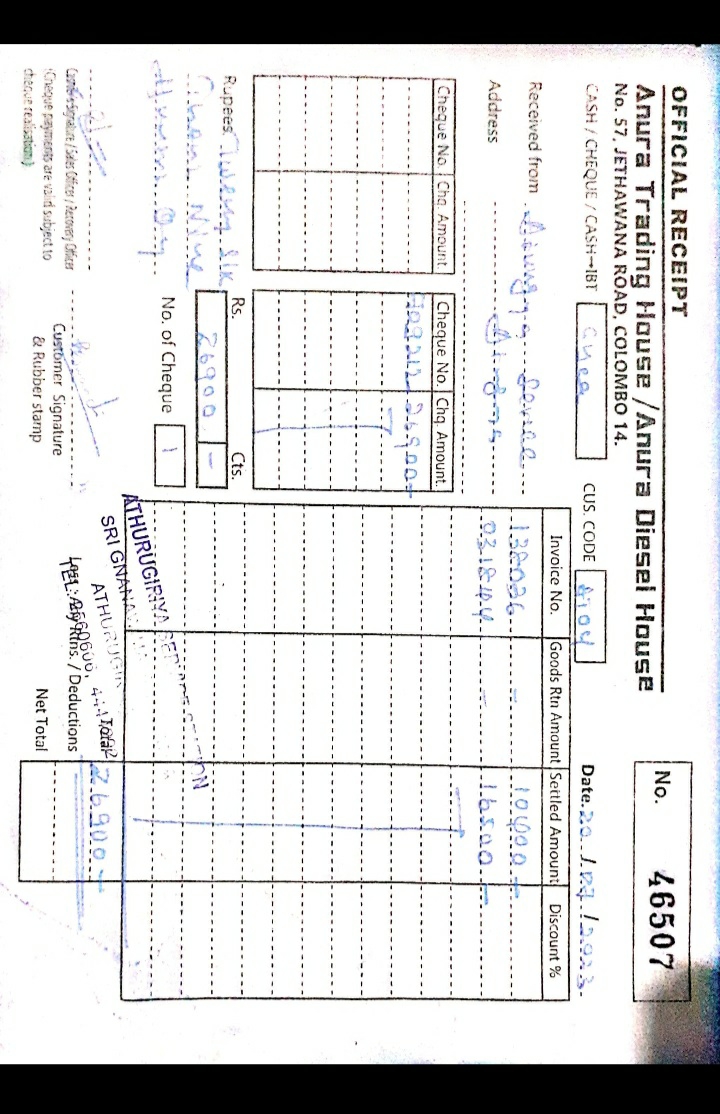 OFFICIAL RECEIPT
Anura Trading House / Anura Diesel House
No. 57, JETHAWANA ROAD, COLOMBO 14.
No. 46507
CASH / CHEQUE / CASH→IBT
CUS. CODE
Date. 20 / 07 / 2023
Received from
Address
Cheque No. Chq. Amount Cheque No. Chq. Amount
26900-
Invoice No. Goods Rtn Amount Settled Amount Discount %
138026 - 10400-
0318144 - 16500-
Rupees Twenty Six
Nine
Rs. Cts.
26900 -
No. of Cheque 1
ATHURUGIRIYA SERVICE STATION
SRI GNANA
ATHURUGIRI
Total 26900-
Less : Any Rtns. / Deductions
Net Total
Customer Signature
& Rubber stamp
Signature / Sales Officer / Recovery Officer
(Cheque payments are valid subject to
cheque realisation)